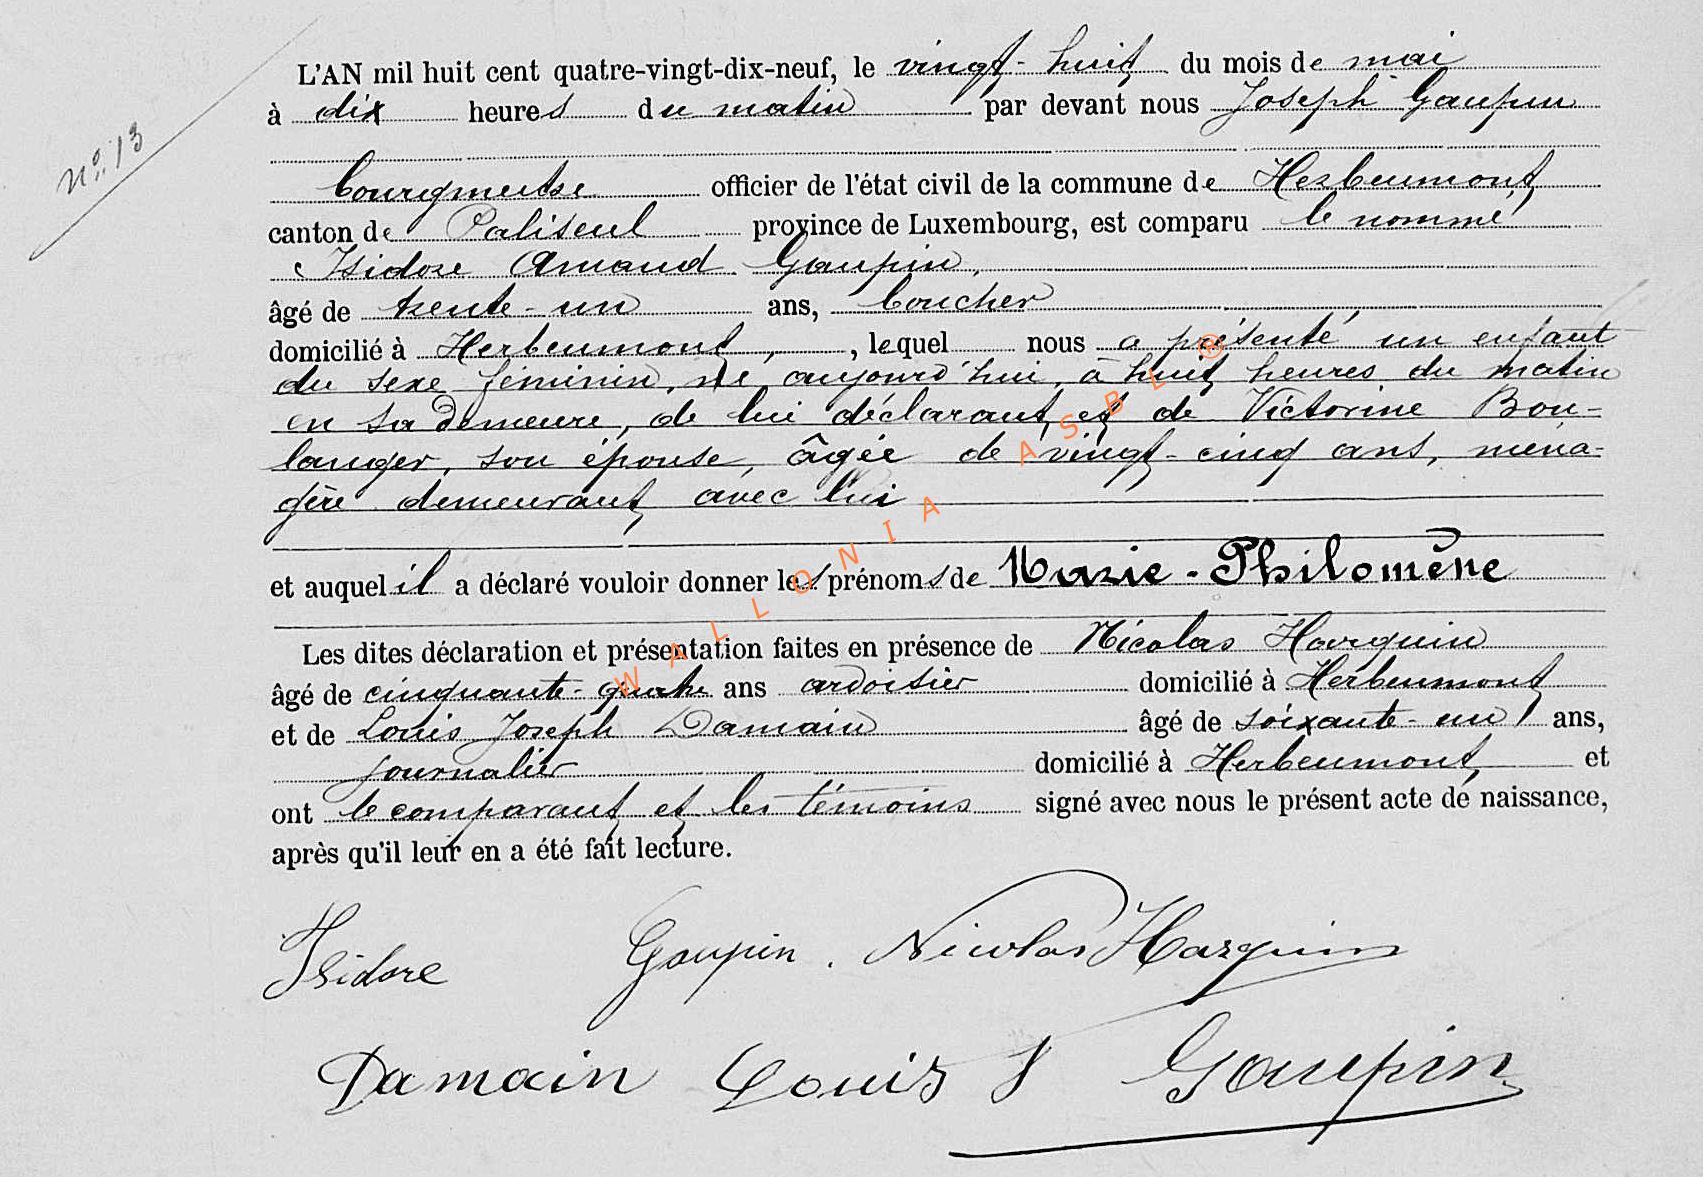 L'AN mil huit cent quatre-vingt-dix-neuf, le vingt-huit du mois de mai
N° 13
à dix heures du matin par devant nous Joseph Gaupin
bourgmestre officier de l'état civil de la commune de Herbeumont
canton de Paliseul province de Luxembourg, est comparu le nommé
Isidore Amand Gaupin,
âgé de trente-un ans, boucher
domicilié à Herbeumont, , lequel nous a présenté un enfant
du sexe féminin, né aujourd'hui, à huit heures du matin
en sa demeure, de lui déclarant et de Victorine Bou-
langer, son épouse, âgée de vingt-cinq ans, ména-
gère demeurant avec lui
et auquel il a déclaré vouloir donner les prénoms de Marie-Philomène
Les dites déclaration et présentation faites en présence de Nicolas Harquin
âgé de cinquante-quatre ans ardoisier domicilié à Herbeumont
et de Louis Joseph Damain âgé de soixante-un ans,
journalier domicilié à Herbeumont, et
ont le comparant et les témoins signé avec nous le présent acte de naissance,
après qu'il leur en a été fait lecture.
Isidore Gaupin. Nicolas Harquin
Damain Louis J Gaupin
WALLONIA ASBL ®